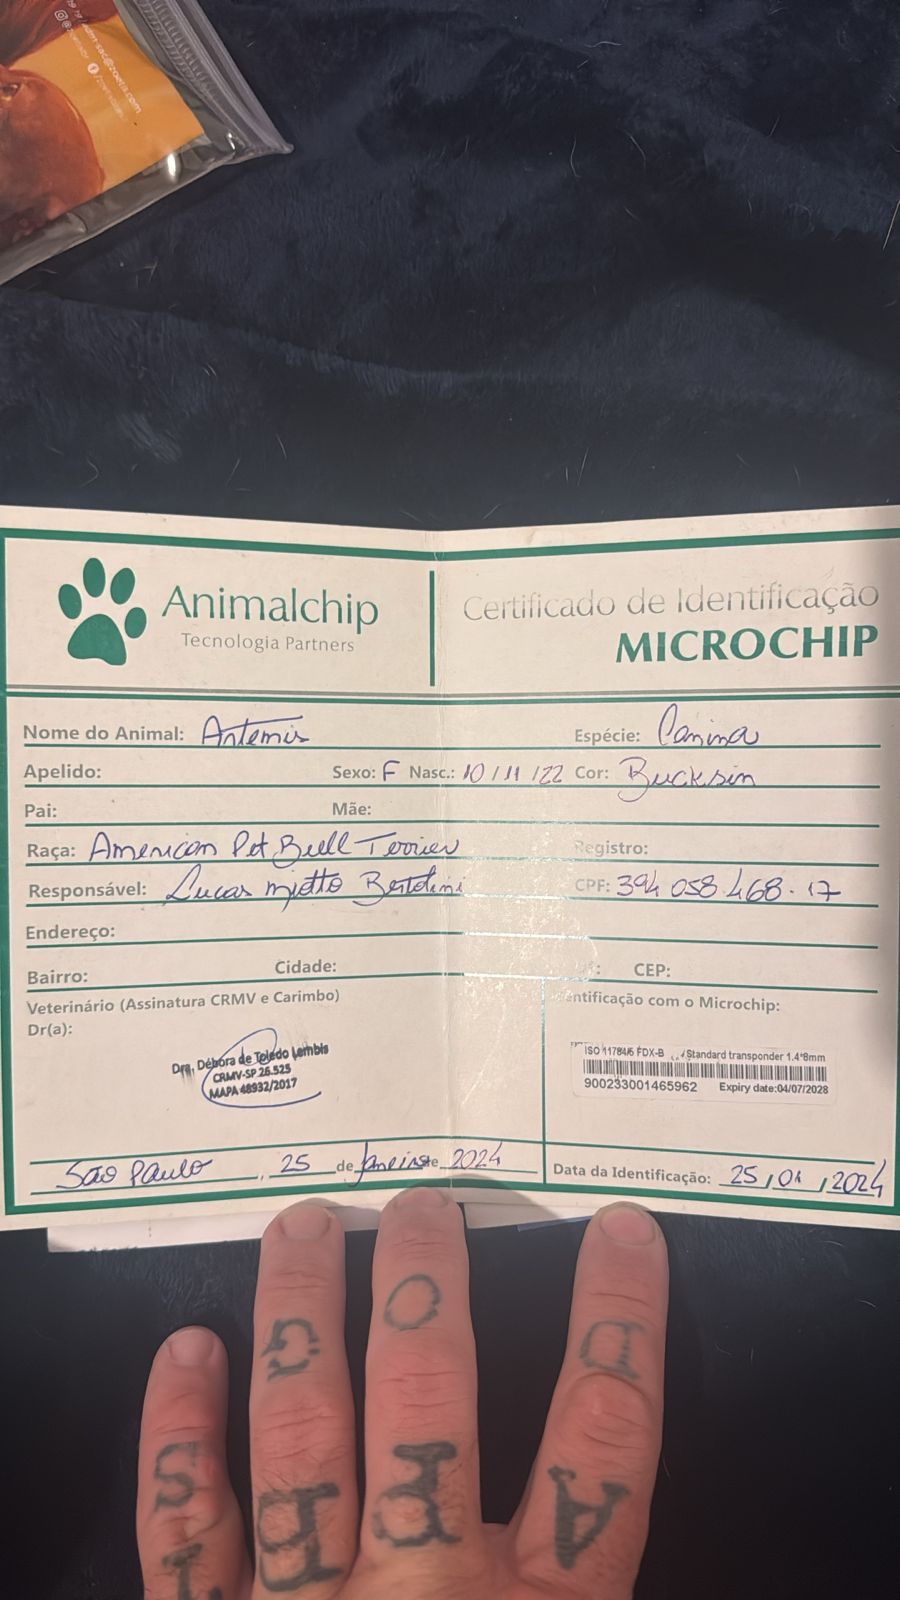 Animalchip
Tecnologia Partners
Certificado de Identificação
MICROCHIP
Nome do Animal: Artemis Espécie: Canina
Apelido: Sexo: F Nasc.: 10/11/22 Cor: Bucksin
Pai: Mãe:
Raça: American Pet Bull Terrier Registro:
Responsável: Lucas miotto Bertolini CPF: 394 058 468-17
Endereço:
Bairro: Cidade: CEP:
Veterinário (Assinatura CRMV e Carimbo)
Dr(a):
Dra. Débora de Toledo Lembis
CRMV-SP 26.525
MAPA 48932/2017
com o Microchip:
ISO 11784/5 FDX-B Standard transponder 1.4*8mm
900233001465962 Expiry date:04/07/2028
São Paulo, 25 de Janeiro de 2024
Data da Identificação: 25/01/2024